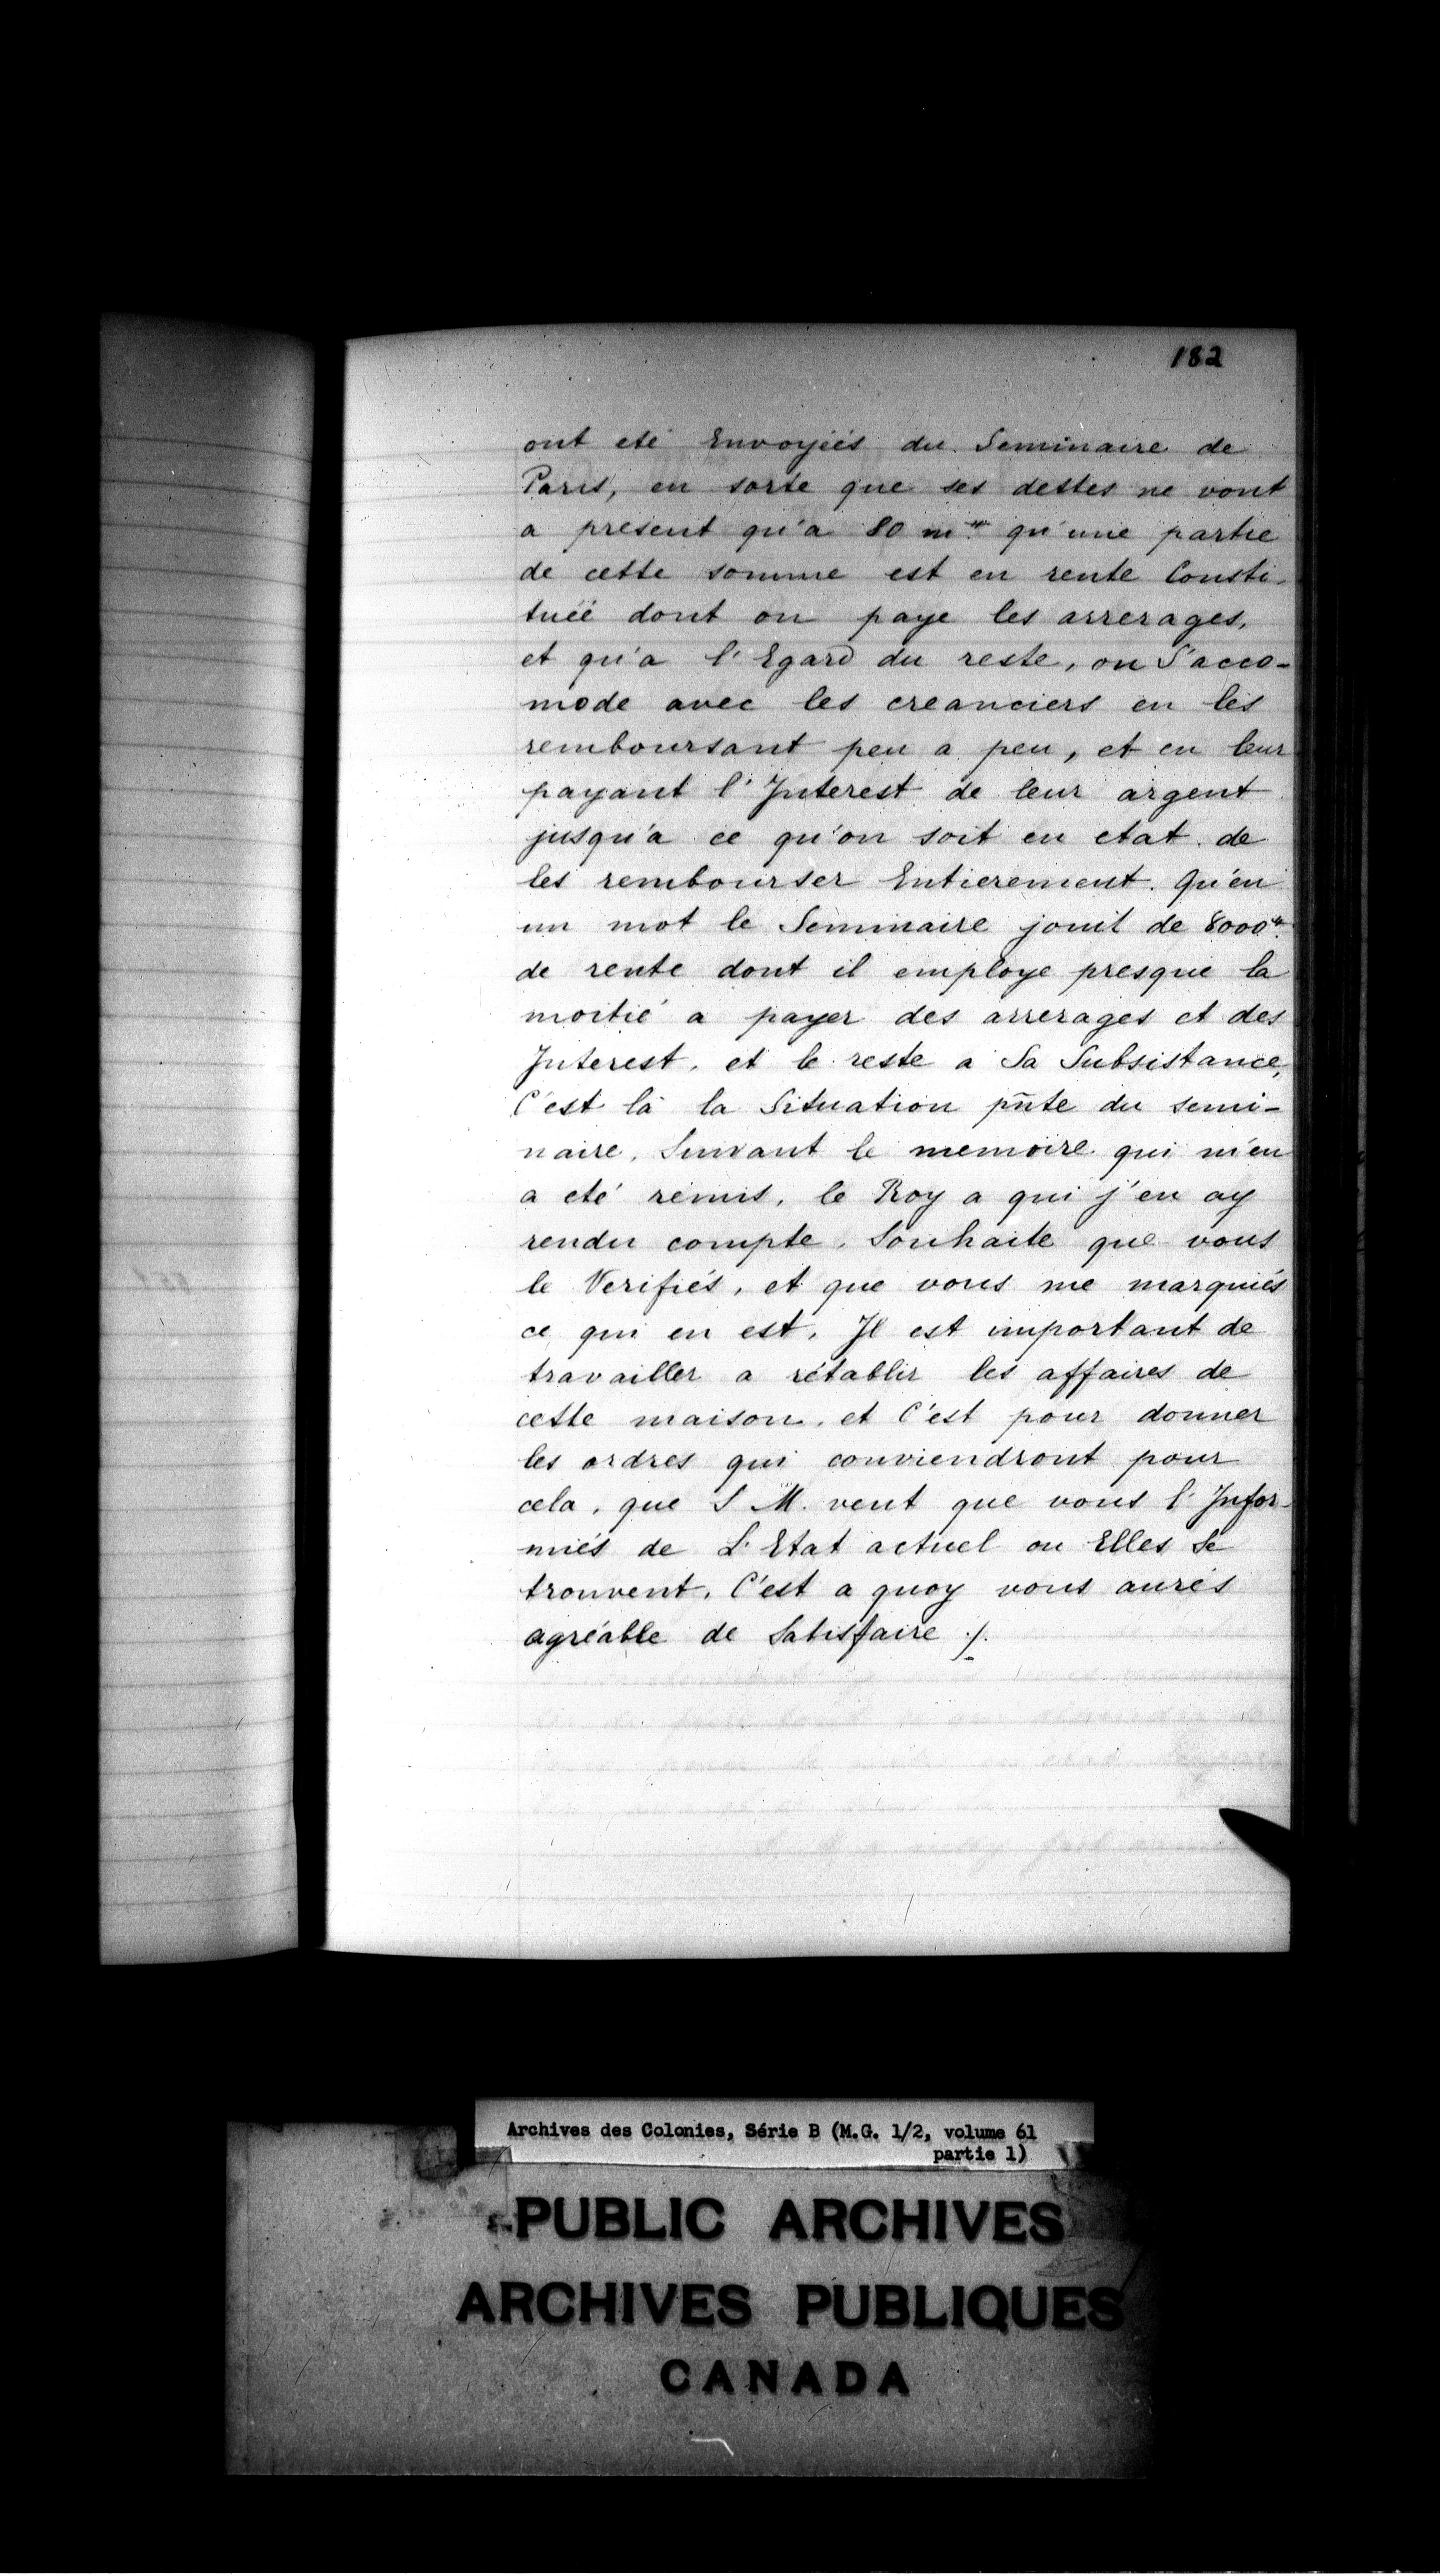 182
ont eté Envoyéés du Seminaire de
Paris, en sorte que ses dettes ne vont
a present qu'a 80 m.# qu'une partie
de cette somme est en rente Consti-
tuéë dont on paye les arrerages,
et qu'a l'Egard du reste, on S'acco-
mode avec les creanciers en les
remboursant peu a peu, et en leur
payant l'Interest de leur argent
jusqu'a ce qu'on soit en etat de
les rembourser Entierement. Qu'en
un mot le Seminaire jouit de 8000#
de rente dont il employe presque la
moitié a payer des arrerages et des
Interest, et le reste a Sa Subsistance,
C'est là la Situation pñte du semi-
naire, Suivant le memoire qui m'en
a eté remis, le Roy a qui j'en ay
rendu compte, Souhaite que vous
le Verifiés, et que vous me marquiés
ce qui en est. Il est important de
travailler a rétablir les affaires de
cette maison, et C'est pour donner
les ordres qui conviendront pour
cela, que S M. veut que vous l'Infor-
miés de L'Etat actuel ou Elles Se
trouvent, C'est a quoy vous aurés
agréable de Satisfaire ./.
Archives des Colonies, Série B (M.G. 1/2, volume 61
partie 1)
PUBLIC ARCHIVES
ARCHIVES PUBLIQUES
CANADA